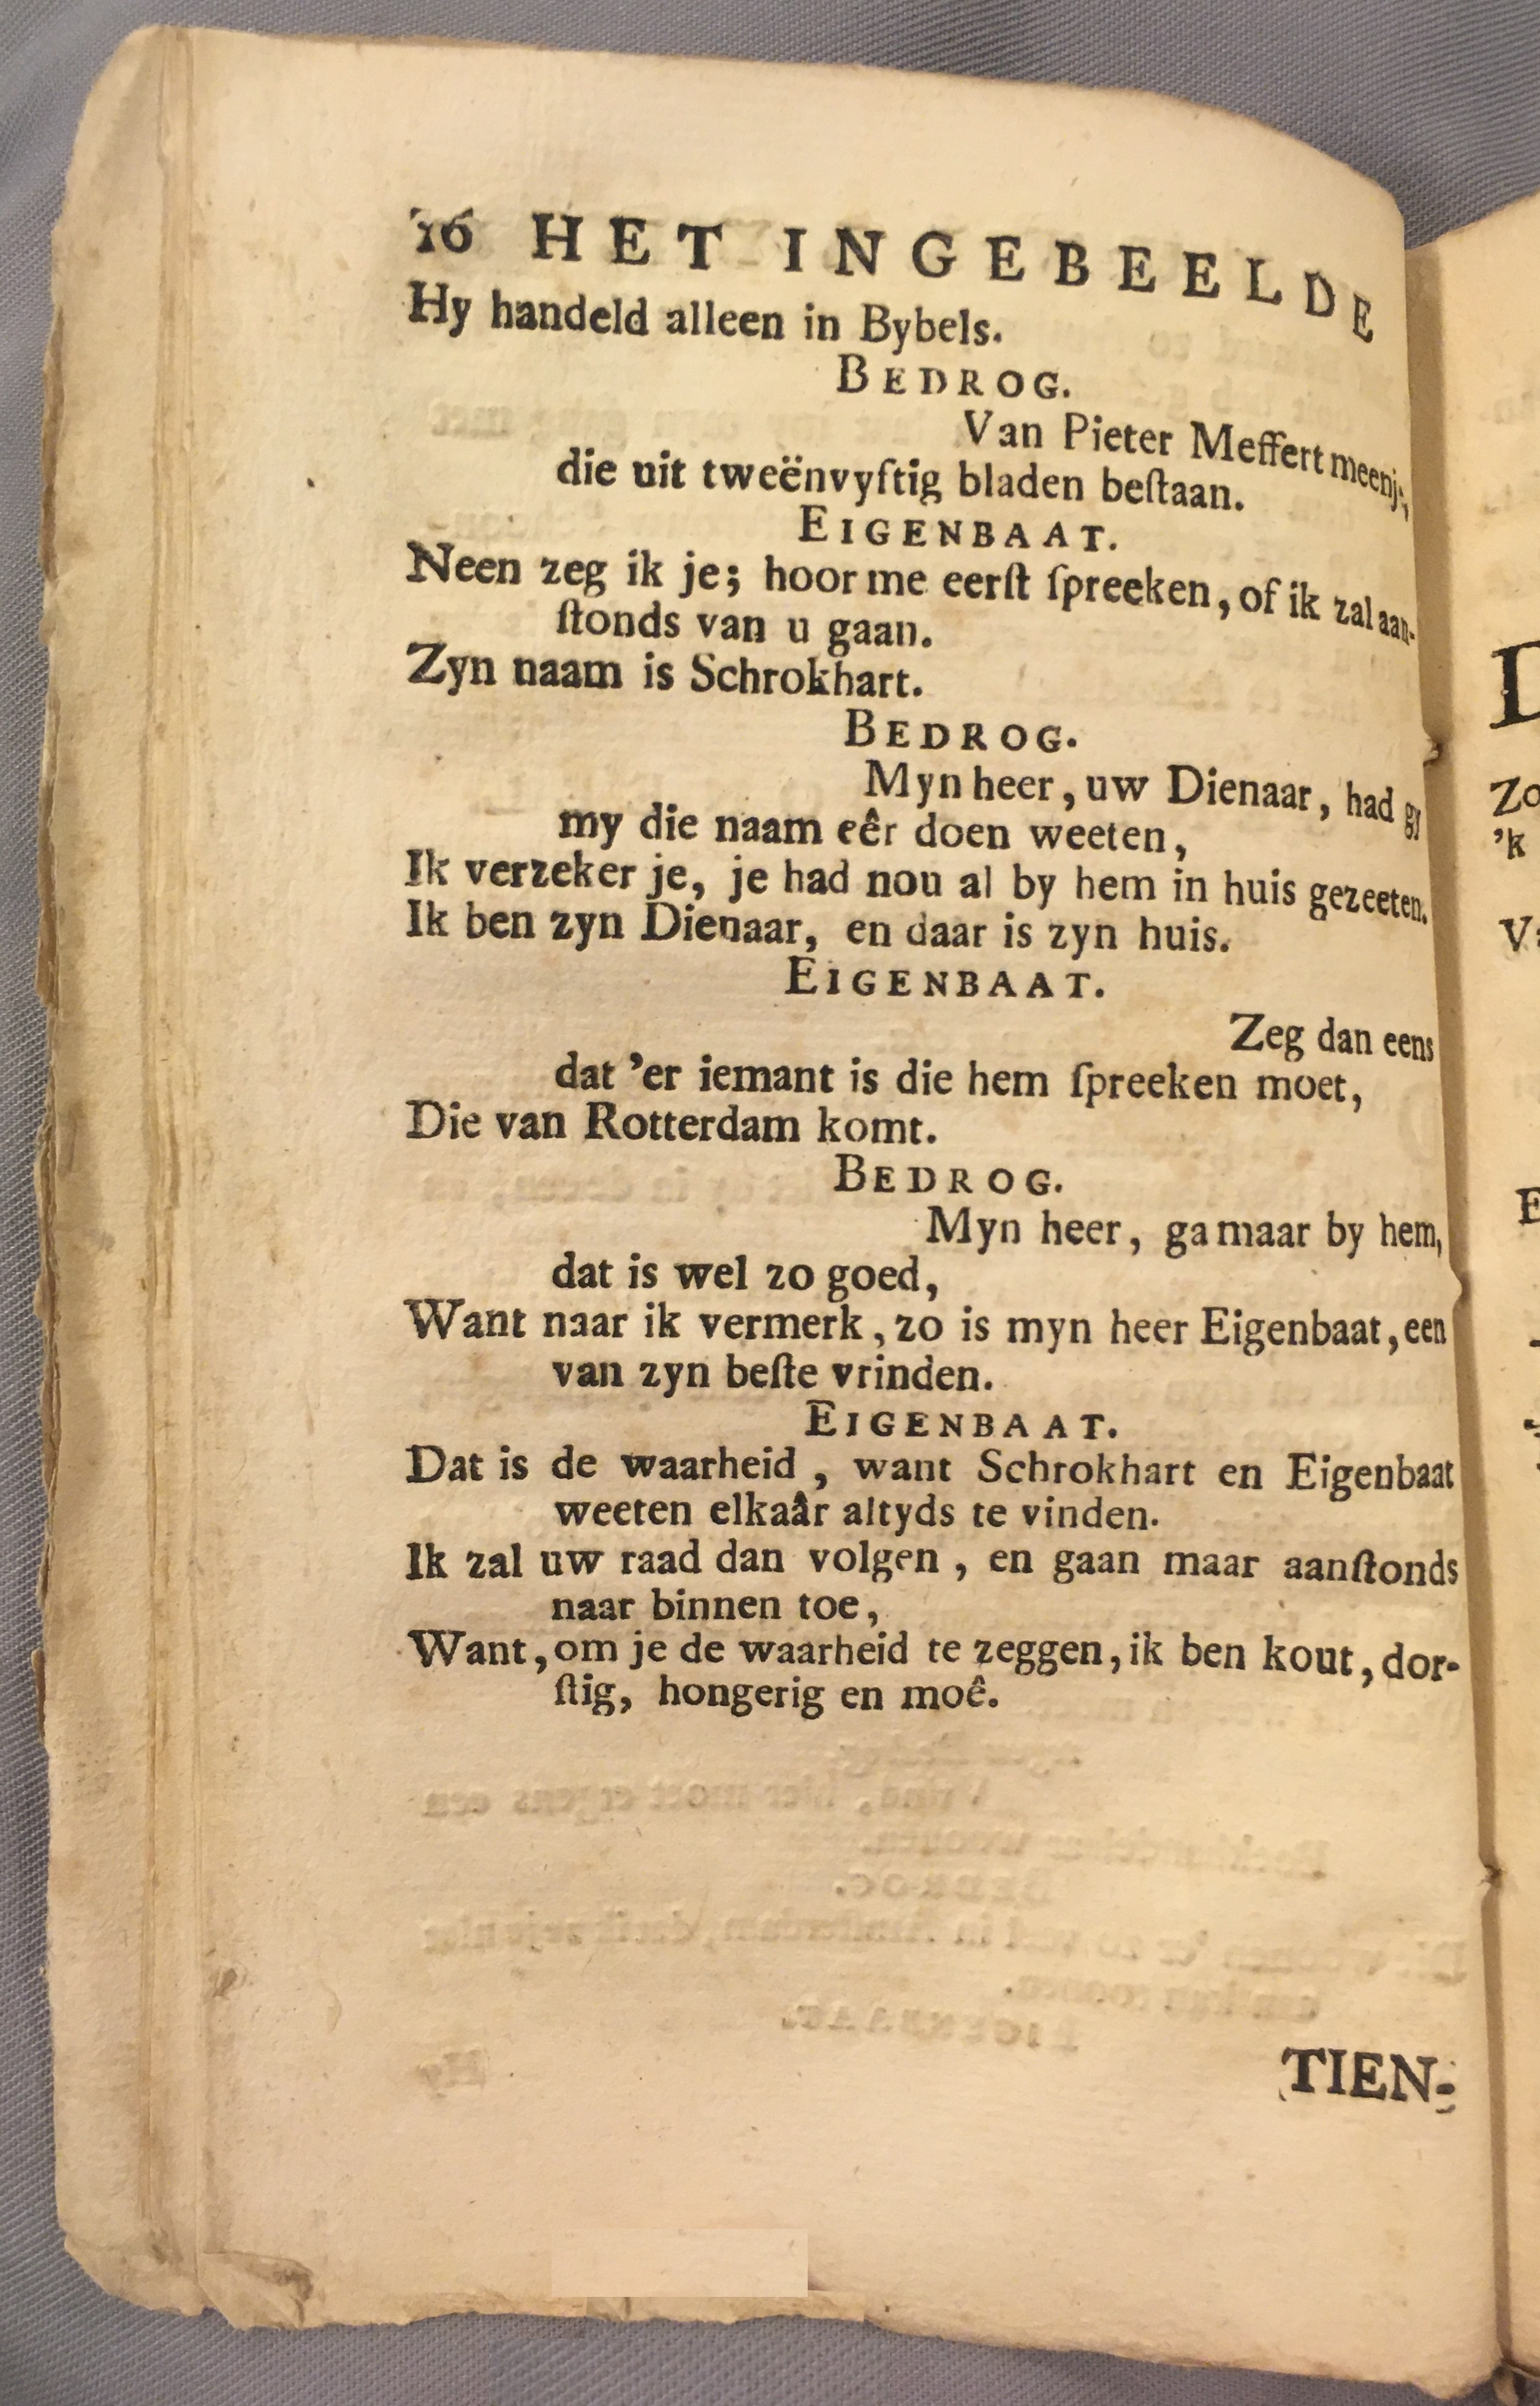 16 HET INGEBEELDE
Hy handeld alleen in Bybels.
BEDROG.
Van Pieter Meffert meenje,
die uit tweënvyftig bladen beſtaan.
EIGENBAAT.
Neen zeg ik je; hoor me eerſt ſpreeken, of ik zal aan-
ſtonds van u gaan.
Zyn naam is Schrokhart.
BEDROG.
Myn heer, uw Dienaar, had gy
my die naam eêr doen weeten,
Ik verzeker je, je had nou al by hem in huis gezeeten.
Ik ben zyn Dienaar, en daar is zyn huis.
EIGENBAAT.
Zeg dan eens
dat 'er iemant is die hem ſpreeken moet,
Die van Rotterdam komt.
BEDROG.
Myn heer, ga maar by hem,
dat is wel zo goed,
Want naar ik vermerk, zo is myn heer Eigenbaat, een
van zyn beſte vrinden.
EIGENBAAT.
Dat is de waarheid, want Schrokhart en Eigenbaat
weeten elkaâr altyds te vinden.
Ik zal uw raad dan volgen, en gaan maar aanſtonds
naar binnen toe,
Want, om je de waarheid te zeggen, ik ben kout, dor-
ſtig, hongerig en moê.
TIEN-
Zo
'k